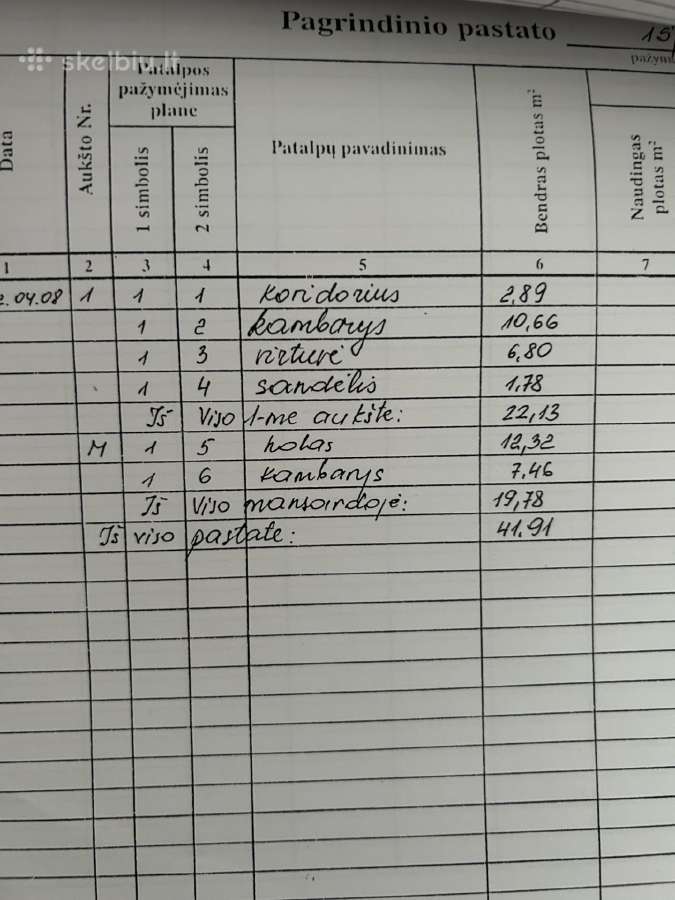 Pagrindinio pastato 15
pažym
skelbiu.lt
Data
Aukšto Nr.
Patalpos pažymėjimas plane
1 simbolis
2 simbolis
Patalpų pavadinimas
Bendras plotas m²
Naudingas plotas m²
1 2 3 4 5 6 7
2.04.08 1 1 1 koridorius 2,89
1 2 kambarys 10,66
1 3 virtuvė 6,80
1 4 sandėlis 1,78
Iš viso 1-me aukšte: 22,13
M 1 5 holas 12,32
1 6 kambarys 7,46
Iš viso mansardoje: 19,78
Iš viso pastate: 41.91